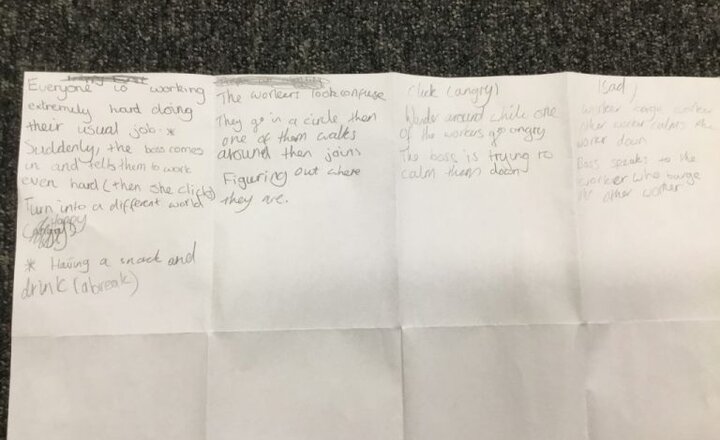 Everyone is working
extremely hard doing
their usual job. *
Suddenly, the boss comes
in and tells them to work
even hard (then she clicks)
Turn into a different world
Happy
* Having a snack and
drink (a break)
The workers look confuse
They go in a circle then
one of them walks
around then joins
Figuring out where
they are.
Click (angry)
Wander around while one
of the workers go angry
The boss is trying to
calm them down
(Sad)
worker barge worker
other worker calms the
worker down
Boss speaks to the
worker who barge
the other worker